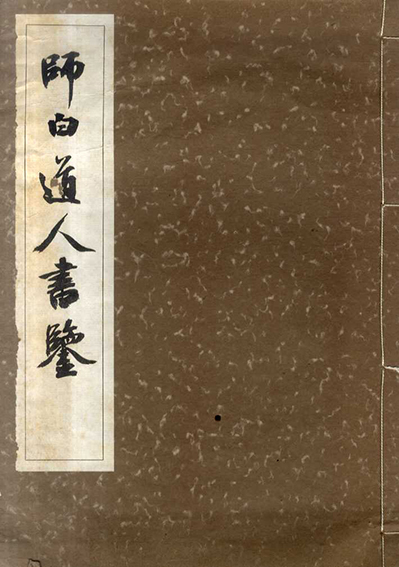 師白道人書鑒